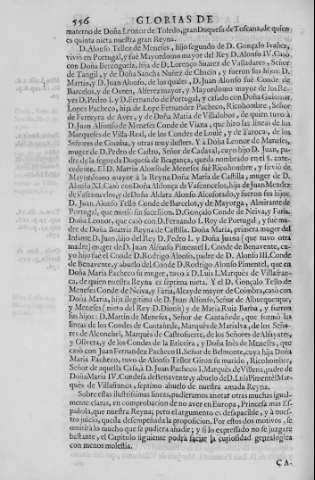 556 GLORIAS DE
materno de Doña Leonor de Toledo, gran Duquesa de Toscana, de quien
es quinta nieta nuestra gran Reyna.
D. Alonso Tellez de Meneses, hijo segundo de D. Gonçalo
vivió en Portugal, y fuè Mayordomo mayor del Rey D. Alonso IV. Casó
con Doña Berenguela, hija de D. Lorenço Suarez de Valladares, Señor
de Tangil, y de Doña Sancha Nuñez de Chacin, y fueron sus hijos: D.
Martin, y D. Juan Alonso, de los quales, D. Juan Alonso fuè Conde de
Barcelos, y de Ouren, Alferez mayor, y Mayordomo mayor de los Re-
yes D. Pedro I. y D. Fernando de Portugal, y casado con Doña Guiomar
Lopez Pacheco, hija de Lope Fernandez Pacheco, Ricohombre, Señor
de Ferreyra de Aver, y de Doña Maria de Villalobos, de quien tuvo à
D. Juan Alonso de Meneses Conde de Viana, que hizo las lineas de los
Marqueses de Villa-Real, de los Condes de Loulè, y de Tarouca, de los
Señores de y otras muy ilustres. Y Doña Leonor de Meneses,
muger de D. Pedro de Castro, Señor de Cadaval, cuyo hijo D. Juan, pa-
dre de la segunda Duquesa de Bragança, queda nombrado en el §. ante-
cedente. El D. Martin Alonso de Meneses fuè Ricohombre, y sirviò de
Mayordomo mayor à la Reyna Doña Maria de Castilla, muger de D.
Alonso XI. Casò con Doña Aldonça de Vasconcelos, hija de Juan Mendez
de Vasconcelos, y de Doña Aldara Alonso Alcoforado, y fueron sus hijos:
D. Juan Alonso Tello Conde de Barcelos, y de Mayorga, Almirante de
Portugal, que muriò sin succession. D. Gonçalo Conde de Neiva, y Faria.
Doña Leonor, que casò con D. Fernando I. Rey de Portugal, y fue ma-
dre de Doña Beatriz Reyna de Castilla. Doña Maria, primera muger del
Infante D. Juan, hijo del Rey D. Pedro I. y Doña Juana (que tuvo otra
madre) muger de D. Juan Alonso Pimentel I. Conde de Benavente, cu-
yo hijo fuè el Conde D. Rodrigo Alonso, padre de D. Alonso III. Conde
de Benavente, y abuelo del Conde D. Rodrigo Alonso Pimentel, que en
Doña Maria Pacheco su muger, tuvo à D. Luis I. Marquès de Villafran-
ca, de quien nuestra Reyna es septima nieta. Y el D. Gonçalo Tello de
Meneses Conde de Neiva, y Faria, Alcayde mayor de Coimbra, casò con
Doña Maria, hija ilegitima de D. Juan Alfonso, Señor de Alburquerque,
y Meneses (nieto del Rey D. Dionis) y de Maria Ruiz Barba, y fueron
sus hijos: D. Martin de Meneses, Señor de Cantañede, que formò las
lineas de los Condes de Cantañede, Marquès de Marialva, de los Seño-
res de Alconchel, Marqués de Castrofuerte, de los Señores de
y Olivera, y de los Condes de la Ericeira, y Doña Inès de Meneses, que
casò con Juan Fernandez Pacheco II. Señor de Belmonte, cuya hija Doña
Maria Pacheco, tuvo de Alonso Tellez Giron su marido, Ricohombre,
Señor de aquella Casa, à D. Juan Pacheco I. Marquès de Villena, padre de
Doña Maria IV. Condesa de Benavente, y abuelo de D. Luis Pimentel Mar-
quès de Villafranca, septimo abuelo de nuestra amada Reyna.
Sobre estas ilustrissimas lineas, pudieramos anotar otras muchas igual-
mente claras, en comprobacion de no aver en Europa, Princesa mas Es-
pañola, que nuestra Reyna; pero el argumento es desapacible, y à nues-
tro juizio, queda desempeñada la proposicion. Por estos dos motivos, se
omitirà lo mucho que se pudiera añadir; y si lo expressado no se juzgare
bastante, el Capitulo siguiente podrà saciar la curiosidad genealogica
con menos molestia.
CA-